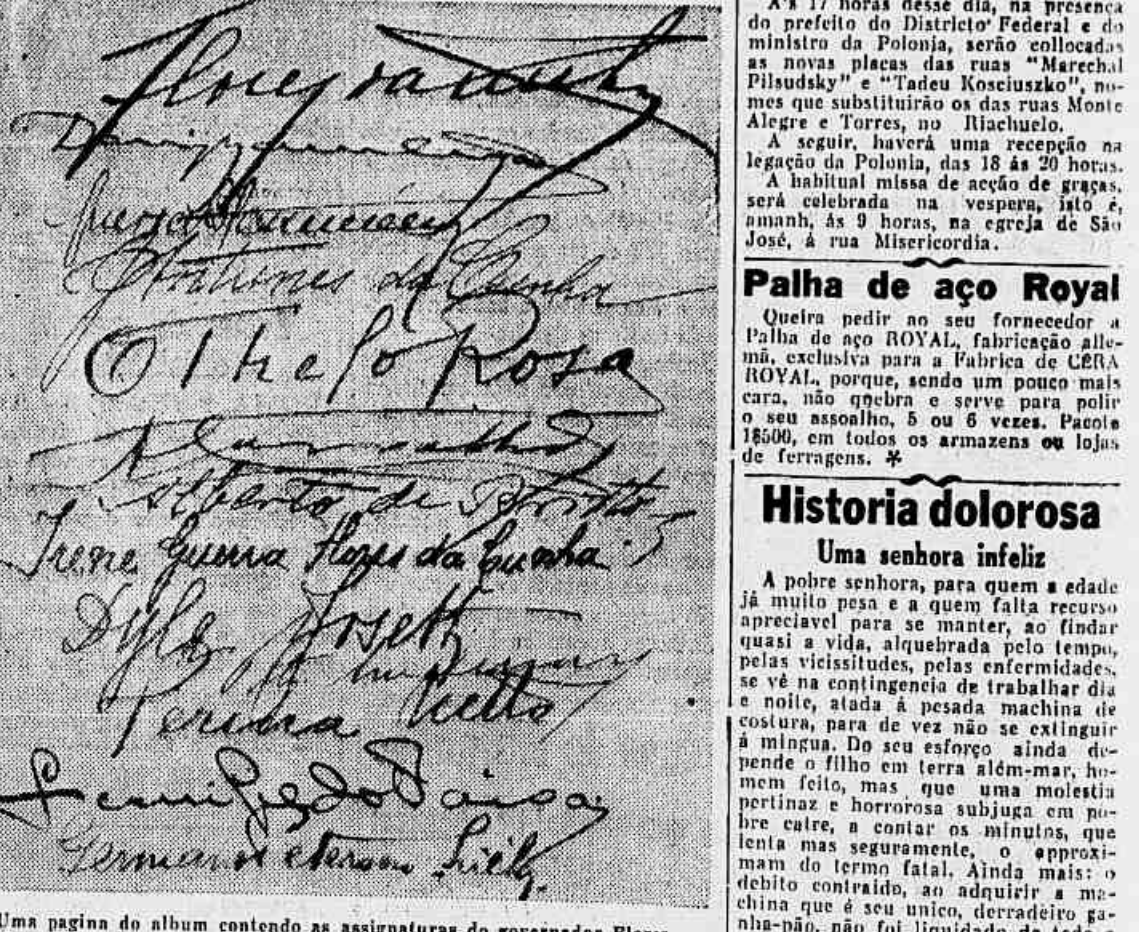 Antunes da Cunha
Othelo Rosa
Alberto de Britto
Irene Guerra Flores da Cunha
Dyla Josetti
Pereira Netto
Germano Peterson
Uma pagina do album contendo as assignaturas do governador Flores
A's 17 horas desse dia, na presença
do prefeito do Districto Federal e do
ministro da Polonia, serão collocadas
as novas placas das ruas "Marechal
Pilsudsky" e "Tadeu Kosciuszko", no-
mes que substituirão os das ruas Monte
Alegre e Torres, no Riachuelo.
A seguir, haverá uma recepção na
legação da Polonia, das 18 ás 20 horas.
A habitual missa de acção de graças,
será celebrada na vespera, isto é,
amanh, ás 9 horas, na egreja de São
José, á rua Misericordia.
Palha de aço Royal
Queira pedir ao seu fornecedor a
Palha de aço ROYAL, fabricação alle-
mã, exclusiva para a Fabrica de CÊRA
ROYAL, porque, sendo um pouco mais
cara, não quebra e serve para polir
o seu assoalho, 5 ou 6 vezes. Pacote
1$500, em todos os armazens ou lojas
de ferragens. *
Historia dolorosa
Uma senhora infeliz
A pobre senhora, para quem a edade
já muito pesa e a quem falta recurso
apreciavel para se manter, ao findar
quasi a vida, alquebrada pelo tempo,
pelas vicissitudes, pelas enfermidades,
se vê na contingencia de trabalhar dia
e noite, atada á pesada machina de
costura, para de vez não se extinguir
á mingua. Do seu esforço ainda de-
pende o filho em terra além-mar, ho-
mem feito, mas que uma molestia
pertinaz e horrorosa subjuga em po-
bre catre, a contar os minutos, que
lenta mas seguramente, o approxi-
mam do termo fatal. Ainda mais: o
debito contraido, ao adquirir a ma-
china que é seu unico, derradeiro ga-
nha-pão, não foi liquidado de todo